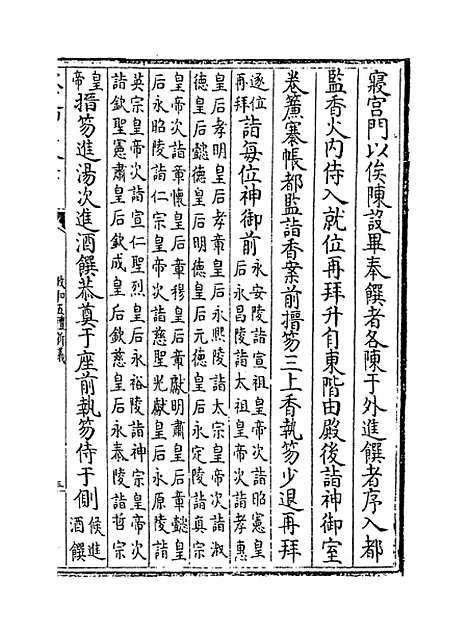 寢宮門以俟陳設畢奉饌者各陳于外進饌者序入都
監香火內侍入就位再拜升自東階由殿後詣神御室
卷簾褰帳都監詣香案前搢笏三上香執笏少退再拜
逐位
再拜
詣每位神御前
永安陵詣宣祖皇帝次詣昭憲皇
后永昌陵詣太祖皇帝次詣孝惠
皇后孝明皇后孝章皇后永熙陵詣太宗皇帝次詣淑
德皇后懿德皇后明德皇后元德皇后永定陵詣真宗
皇帝次詣章懷皇后章穆皇后章獻明肅皇后章懿皇
后永昭陵詣仁宗皇帝次詣慈聖光獻皇后永原陵詣
英宗皇帝次詣宣仁聖烈皇后永裕陵詣神宗皇帝次
詣欽聖憲肅皇后欽成皇后欽慈皇后永泰陵詣哲宗
皇
帝
搢笏進湯次進酒饌恭奠于座前執笏侍于側
候進
酒饌
政和五禮新儀